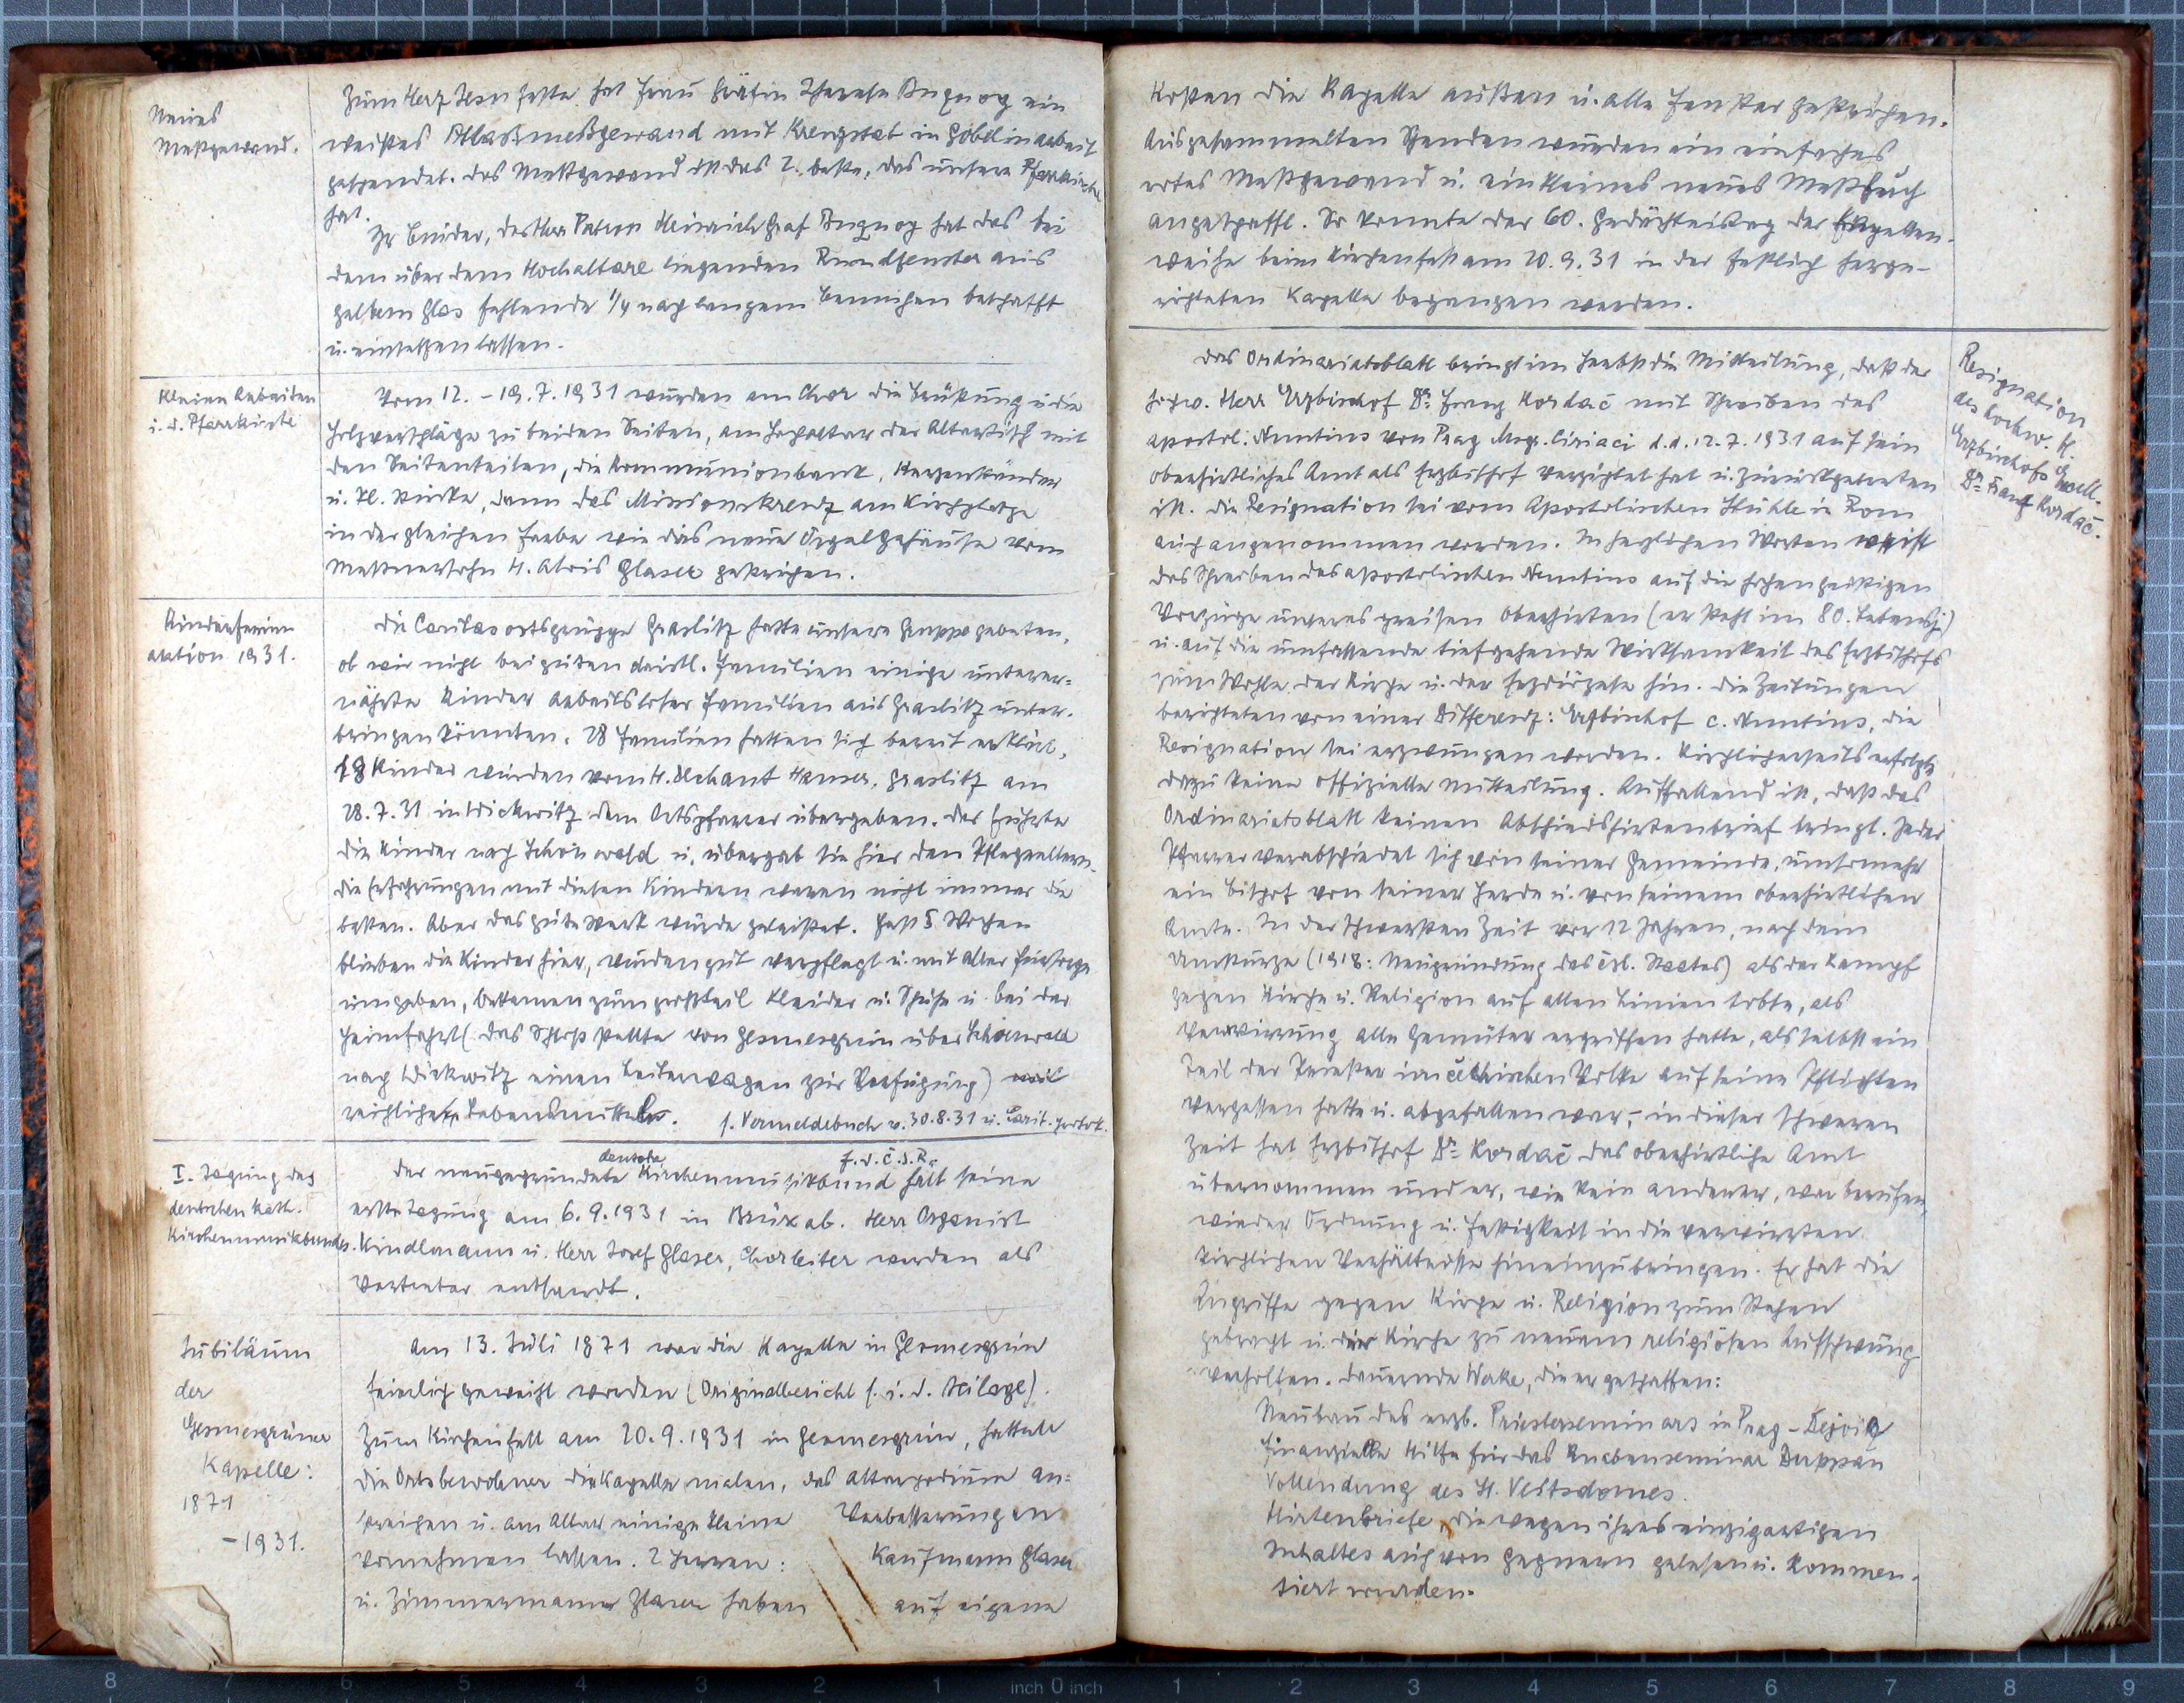 Neues
Meßgewand.
Zum Herz Jesu Feste hat Frau Gräfin Therese Buquoy ein
weißes Atlasmeßgewand mit Kreuzstab in Gobelinarbeit
gespendet. Das Meßgewand ist das 2. beste, das unsere Pfarrkirche
hat.
Ihr Bruder, des Herr Patron Heinrich Graf Buquoy hat das bei
dem über dem Hochaltare liegenden Rundfenster aus
gelbem Glas fehlende 1/4 nach langem Bemühen beschafft
u. einsetzen lassen.
Kleine Arbeiten
i. d. Pfarrkirche
Vom 12. – 19.7.1931 wurden am Chor die Brüstung u. die
Holzverschläge zu beiden Seiten, am Hochaltar der Altartisch mit
den Seitenteilen, die Kommunionbank, Kerzenständer
u. kl. Stücke, dann das Missionskreuz am Kirchplatze
in der gleichen Farbe wie das neue Orgelgehäuse vom
Meßnersohn H. Alois Glaser gestrichen.
Kinderferien
aktion 1931.
Die Caritasortsgruppe Graslitz hatte unsere Gruppe gebeten,
ob wir nicht bei guten christl. Familien einige unterer-
nährte Kinder arbeitsloser Familien aus Graslitz unter-
bringen könnten. 28 Familien hatten sich bereit erklärt,
18 Kinder wurden vom H. Dechant Hamer, Graslitz am
28.7.31 in Wickwitz dem Ortspfarrer übergeben. Der führte
die Kinder nach Schönwald u. übergab sie hier den Pflegeeltern.
Die Erfahrungen mit diesen Kindern waren nicht immer die
besten. Aber das gute Werk wurde geleistet. Fast 5 Wochen
blieben die Kinder hier, wurden gut verpflegt u. mit aller Fürsorge
umgeben, bekamen zum großteil Kleider u. Schuhe u. bei der
Heimfahrt (das Schloß stellte von Gesmesgrün über Schönwald
nach Wickwitz einen Leiterwagen zur Verfügung)
reichliche Lebensmittel. s. Vermeldebuch v. 30.8.31 u. Carit.protok.
I. Tagung des
deutschen kath.
Kirchenmusikbundes.
deutsche f. d. Č.S.R.
Der neugegründete Kirchenmusikbund hält seine
erste Tagung am 6.9.1931 in Brüx ab. Herr Organist
Kindlmann u. Herr Josef Glaser, Chorleiter wurden als
Vertreter entsandt.
Jubiläum
der
Gesmesgrüner
Kapelle:
1871
– 1931.
Am 13. Juli 1871 war die Kapelle in Gesmesgrün
feierlich geweiht worden (Originalbericht s. i. d. Beilage).
Zum Kirchenfest am 20.9.1931 in Gesmesgrün, hatten
die Ortsbewohner die Kapelle malen, das Altarpodium an-
streichen u. am Altar einige kleine Verbesserungen
vornehmen lassen. 2 Herren: Kaufmann Glaser
u. Zimmermann Glaser haben auf eigene
Kosten die Kapelle außen u. alle Fenster gestrichen.
Aus gesammelten Spenden wurden ein einfaches
rotes Meßgewand u. ein kleines neues Meßbuch
angeschafft. So konnte der 60. Gedächtnistag der Kapellen-
weihe beim Kirchenfest am 20.9.31 in der festlich herge-
richteten Kapelle begangen werden.
Resignation
des hochw. H.
Erzbischofs Exzell.
Dr. Franz Kordač.
Das Ordinariatsblatt bringt im Herbst die Mitteilung, daß der
hochw. Herr Erzbischof Dr. Franz Kordač mit Schreiben des
apostol. Nuntius von Prag Msgr. Ciriaci d. d. 12.7.1931 auf sein
oberhirtliches Amt als Erzbischof verzichtet hat u. zurückgetreten
ist. Die Resignation sei vom Apostolischen Stuhle in Rom
auch angenommen worden. In herzlichen Worten weist
das Schreiben des apostolischen Nuntius auf die hohen geistigen
Vorzüge unseres greisen Oberhirten (er steht im 80. Lebensj.)
u. auf die umfassende tiefgehende Wirksamkeit des Erzbischofs
zum Wohle der Kirche u. der Erzdiözese hin. Die Zeitungen
berichteten von einer Differenz: Erzbischof c. Nuntius, die
Resignation sei erzwungen worden. Kirchlicherseits erfolgte
dazu keine offizielle Mitteilung. Auffallend ist, daß das
Ordinariatsblatt keinen Abschiedshirtenbrief bringt. Jeder
Pfarrer verabschiedet sich von seiner Gemeinde, umsomehr
ein Bischof von seiner Herde u. von seinem oberhirtlichen
Amte. In der schwersten Zeit vor 12 Jahren, nach dem
Umsturze (1918: Neugründung des čsl. Staates) als der Kampf
gegen Kirche u. Religion auf allen Linien tobte, als
Verwirrung alle Gemüter ergriffen hatte, als selbst ein
Teil der Priester im čechischen Volke auf seine Pflichten
vergessen hatte u. abgefallen war, – in dieser schweren
Zeit hat Erzbischof Dr. Kordač das oberhirtliche Amt
übernommen und er, wie kein anderer, war berufen,
wieder Ordnung u. Festigkeit in die verwirrten
kirchlichen Verhältnisse hineinzubringen. Er hat die
Angriffe gegen Kirche u. Religion zum Stehen
gebracht u. der Kirche zu neuem religiösen Aufschwung
verholfen. Dauernde Werke, die er geschaffen:
Neubau des erzb. Priesterseminars in Prag – Dejvitz
Finanzielle Hilfe für das Knabenseminar Duppau
Vollendung des St. Veitsdomes.
Hirtenbriefe, die wegen ihres einzigartigen
Inhaltes auch von Gegnern gelesen u. kommen-
tiert wurden.
8 7 6 5 4 3 2 1 inch 0 inch 1 2 3 4 5 6 7 8 9